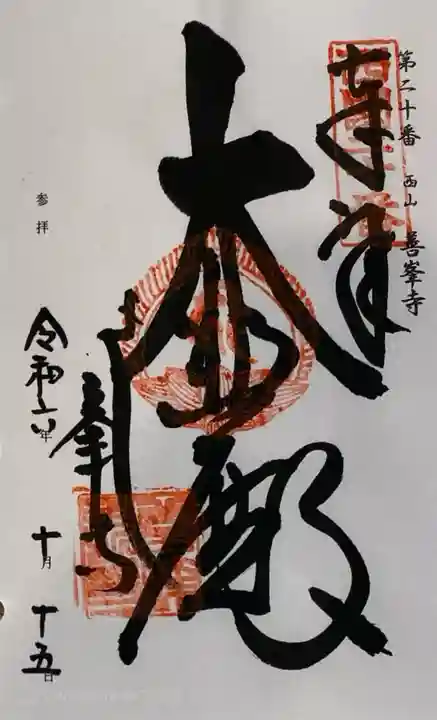 第二十番 西山 善峯寺
奉拝
大悲殿
善峯寺
参拝
令和六年 十月 十五日